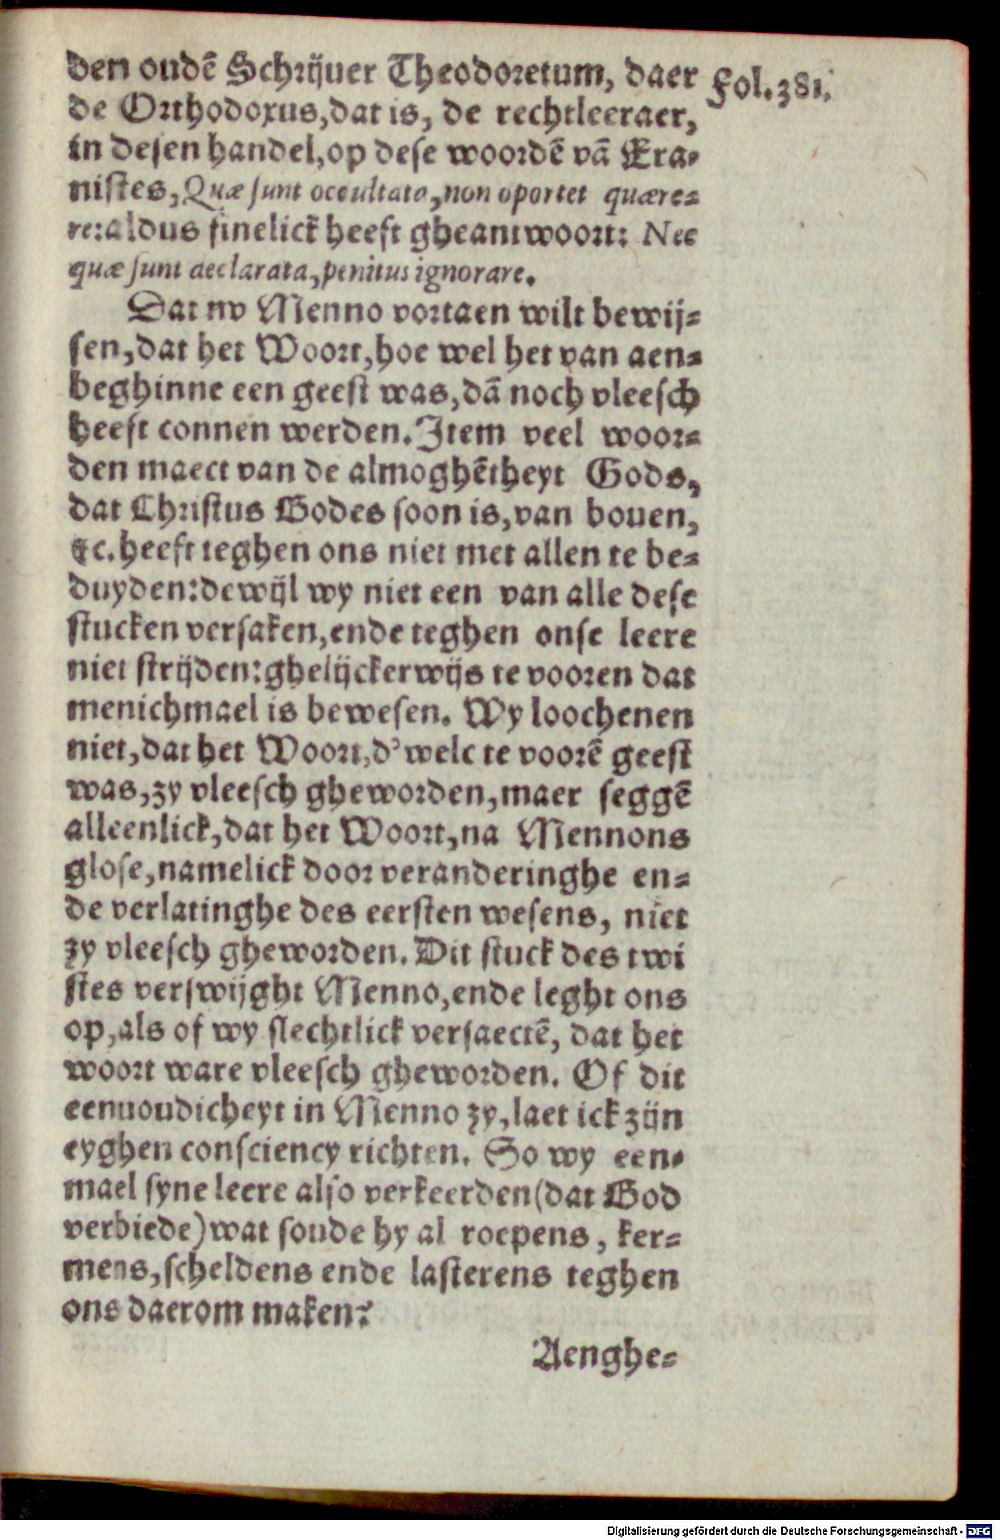 den oudē Schrijuer Theodoretum, daer
Fol. 381.
de Orthodoxus, dat is, de rechtleeraer,
in desen handel, op dese woordē vā Era-
nistes, Quæ sunt occultata, non oportet quære-
re: aldus finelick heeft gheantwoort: Nec
quæ sunt declarata, penitus ignorare.
Dat nv Menno vortaen wilt bewij-
sen, dat het Woort, hoe wel het van aen-
beghinne een geest was, dā noch vleesch
heeft connen werden. Item veel woor-
den maect van de almoghētheyt Gods,
dat Christus Godes soon is, van bouen,
&c. heeft teghen ons niet met allen te be-
duyden: dewijl wy niet een van alle dese
stucken versaken, ende teghen onse leere
niet strijden: ghelijckerwijs te vooren dat
menichmael is bewesen. Wy loochenen
niet, dat het Woort, d'welc te voorē geest
was, zy vleesch gheworden, maer seggē
alleenlick, dat het Woort, na Mennons
glose, namelick door veranderinghe en-
de verlatinghe des eersten wesens, niet
zy vleesch gheworden. Dit stuck des twi
stes verswijght Menno, ende leght ons
op, als of wy slechtlick versaectē, dat het
woort ware vleesch gheworden. Of dit
eenuoudicheyt in Menno zy, laet ick zijn
eyghen consciency richten. So wy een-
mael syne leere also verkeerden (dat God
verbiede) wat soude hy al roepens, ker-
mens, scheldens ende lasterens teghen
ons daerom maken?
Aenghe-
Digitalisierung gefördert durch die Deutsche Forschungsgemeinschaft - DFG